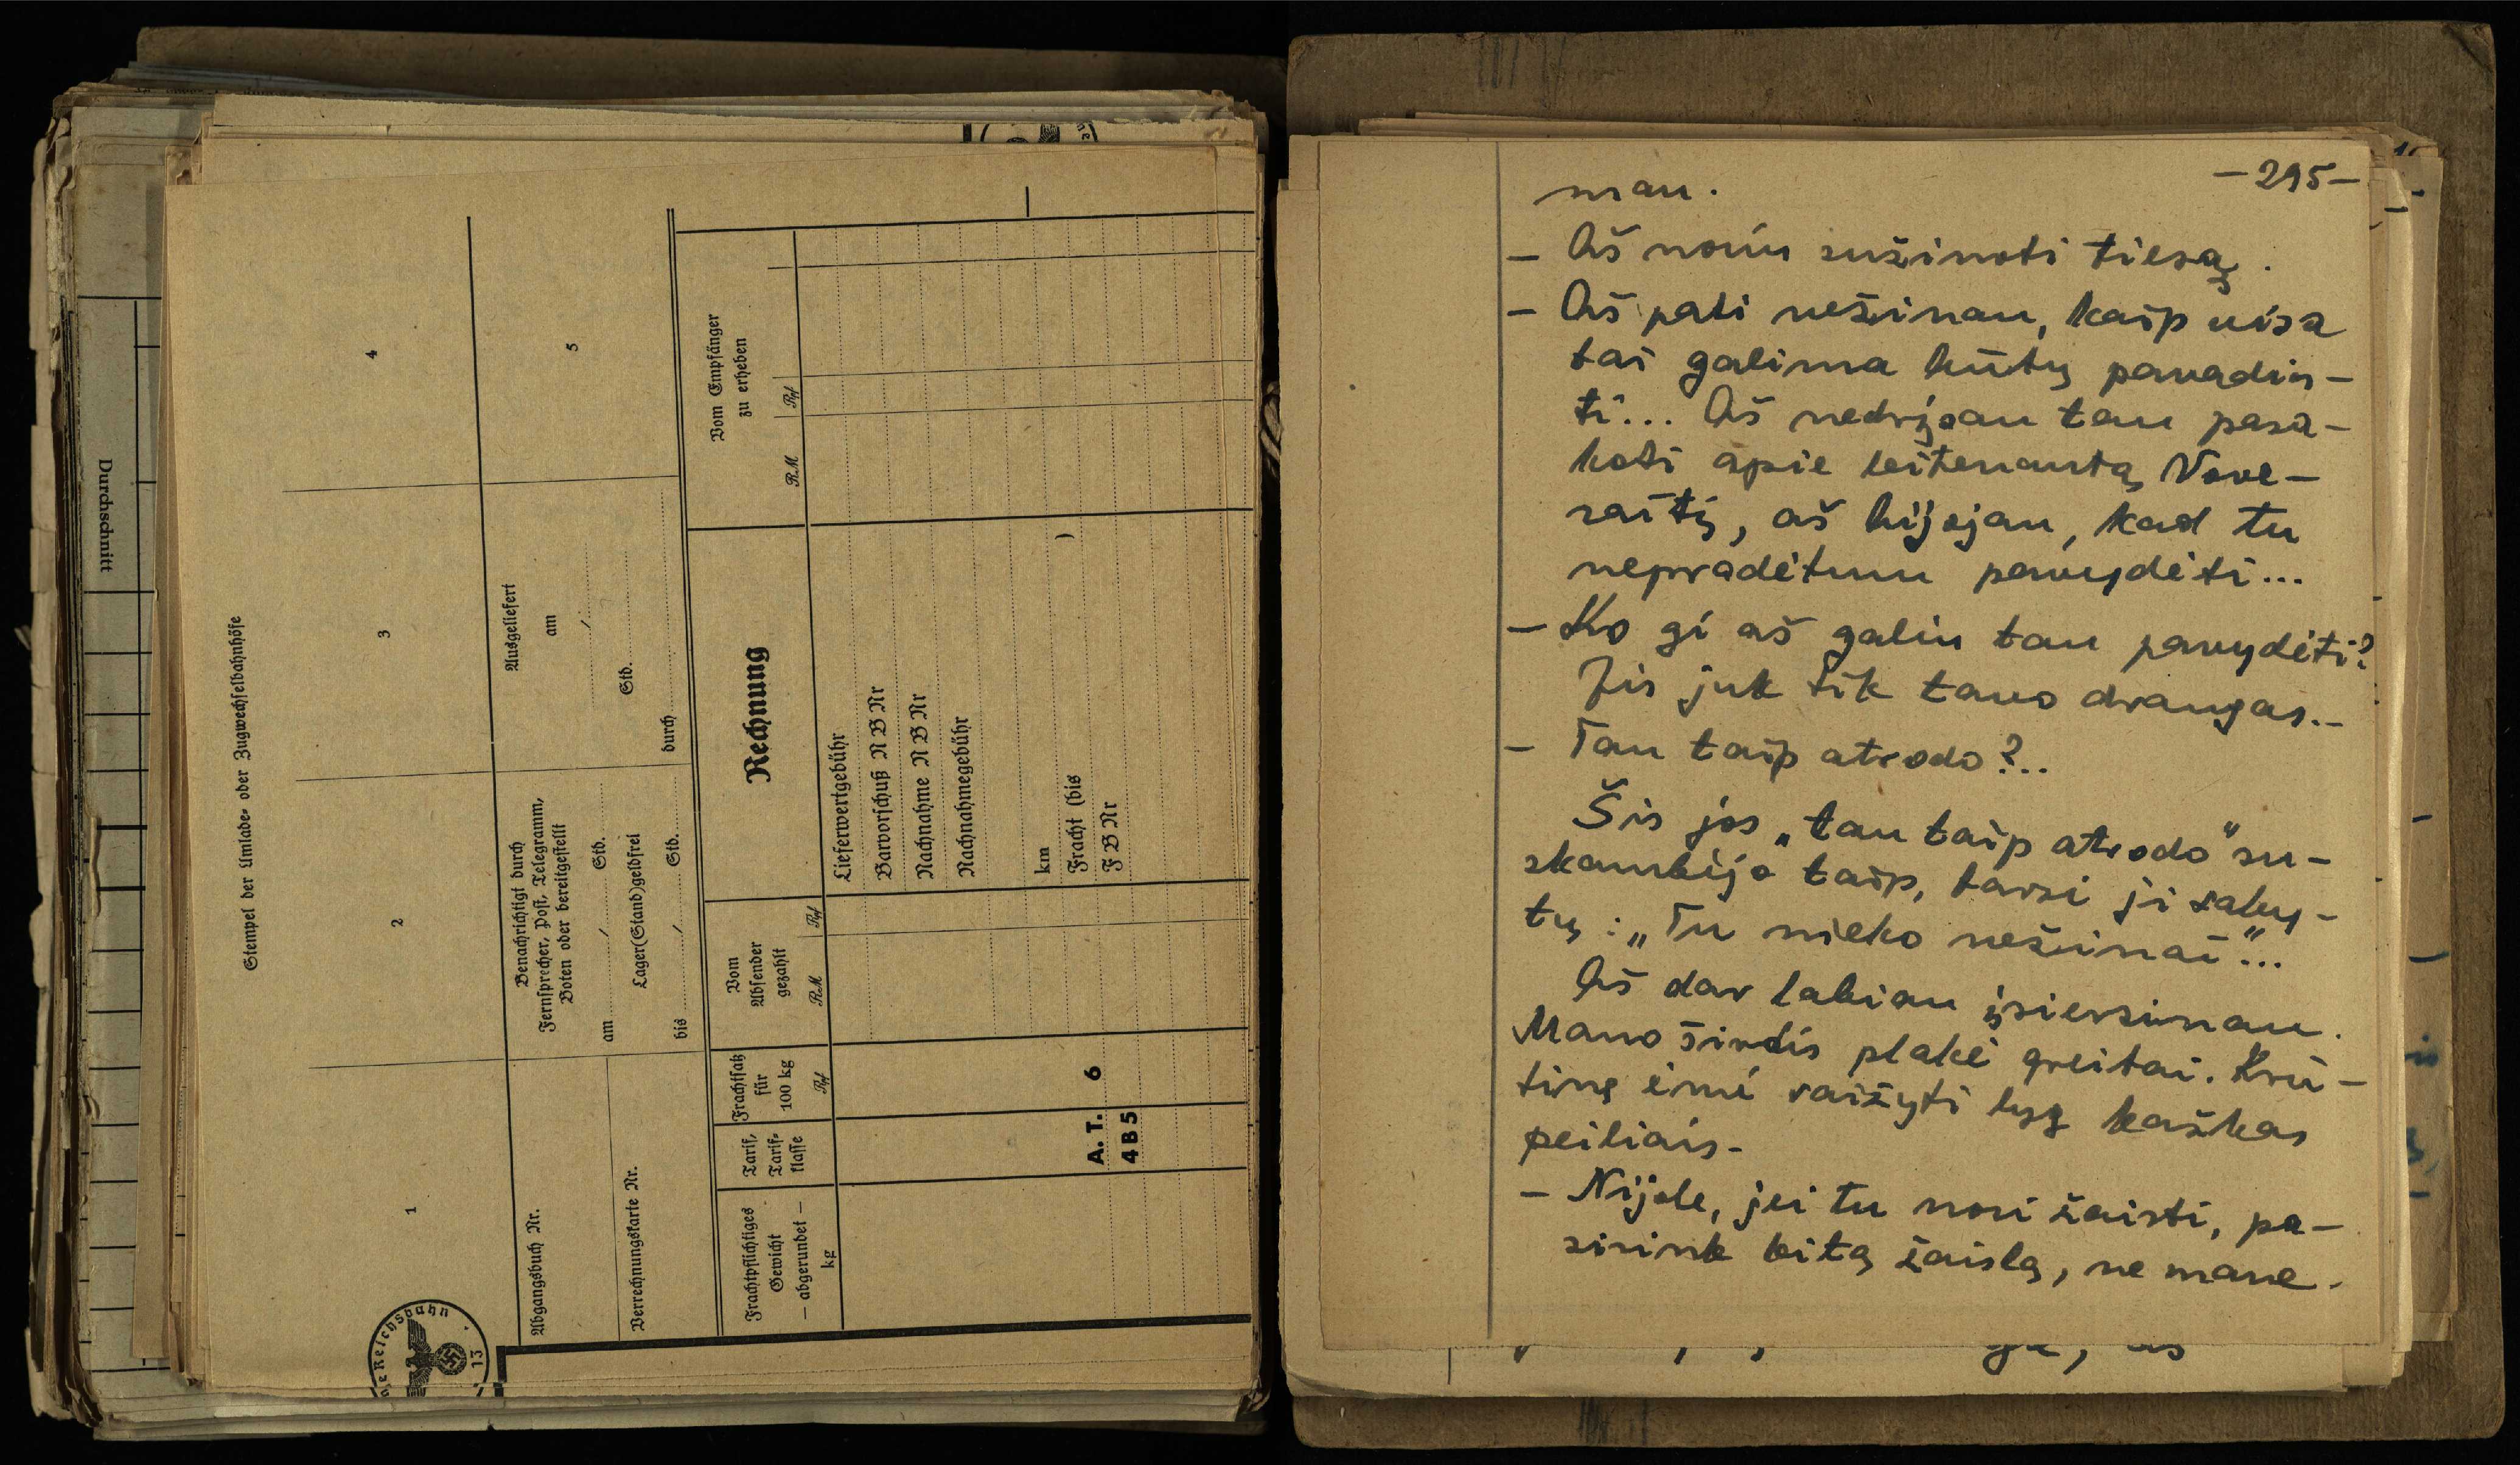 Durchschnitt
Stempel der Umlade- oder Zugwechselbahnhöfe
1
2
3
4
Abgangsbuch Nr.
Benachrichtigt durch
Fernsprecher, Post, Telegramm,
Boten oder bereitgestellt
am / Std.
Ausgeliefert
am
/
Std.
5
Verrechnungskarte Nr.
Lager(Stand)geldfrei
bis / Std.
durch
Frachtpflichtiges
Gewicht
— abgerundet —
kg
Tarif,
Tarif-
klasse
Frachtsatz
für
100 kg
Rpf
Vom
Absender
gezahlt
RM Rpf
Rechnung
Vom Empfänger
zu erheben
RM Rpf
Lieferwertgebühr
Barvorschuß N B Nr
Nachnahme N B Nr
Nachnahmegebühr
km
Fracht (bis )
A. T. 6
F B Nr
4 B 5
Reichsbahn
13
—295—
man.
— Aš noriu sužinoti tiesą.
— Aš pati nežinau, kaip visa
tai galima būtų pavadin-
ti... Aš nedrįsau tau pasa-
koti apie leitenantą Vove-
raitį, aš bijojau, kad tu
nepradėtum pavydėti...
— Ko gi aš galiu tau pavydėti?
Jis juk tik tavo draugas.-
— Tau taip atrodo?..
Šis jos „tau taip atrodo" su-
skambėjo taip, tarsi ji saky-
tų: „Tu nieko nežinai"...
Aš dar labiau įsiersinau.
Mano širdis plakė greitai. Krū-
tinę ėmė raižyti lyg kažkas
peiliais-
— Nijole, jei tu nori žaisti, pa-
sirink kitą žaislą, ne mane.